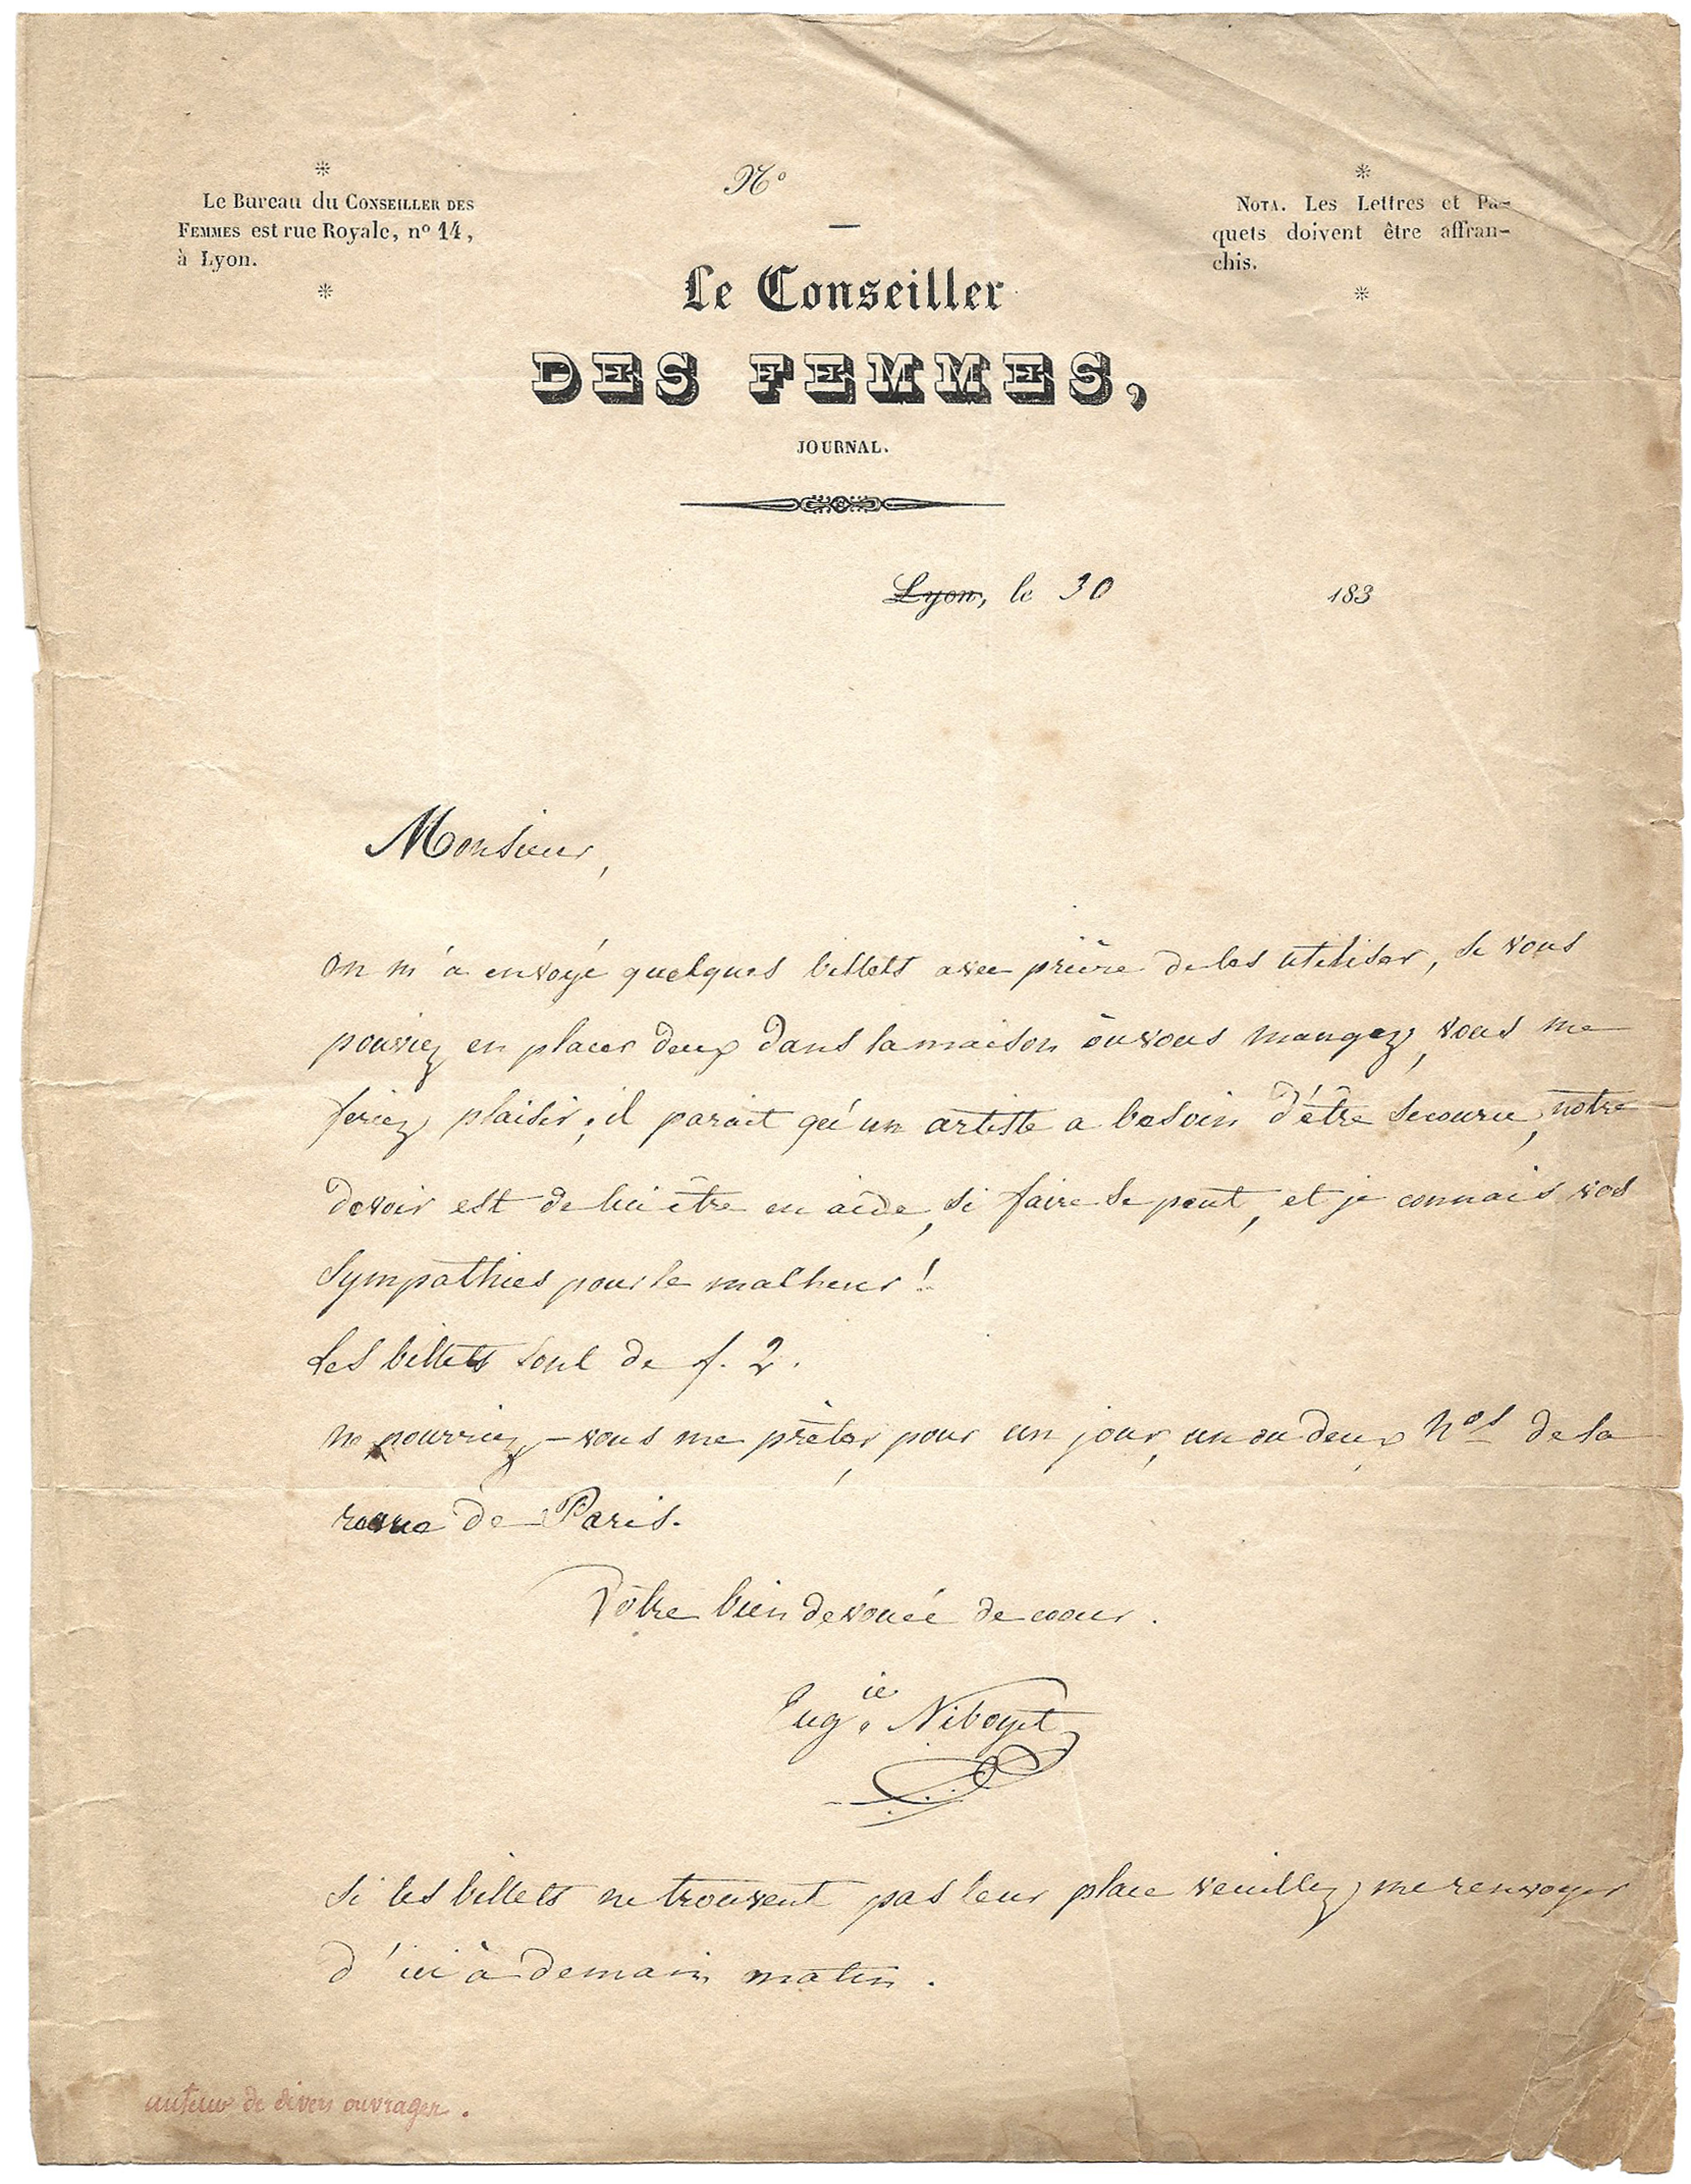 *
Le Bureau du Conseiller des
Femmes est rue Royale, nº 14,
à Lyon.
*
Nº
—
*
Nota. Les Lettres et Pa-
quets doivent être affran-
chis.
*
Le Conseiller
DES FEMMES,
JOURNAL.
Lyon, le 30 183
Monsieur,
on m'a envoyé quelques billets avec prière de les utiliser, si vous
pouviez en placer deux dans la maison ôu vous mangez, vous me
feriez plaisir; il parait qu'un artiste a besoin d'être secouru, notre
devoir est de lui être en aide, si faire se peut, et je connais vos
sympathies pour le malheur!
Les billets sont de f. 2.
ne pourriez-vous me prêter, pour un jour, un ou deux nos de la
revue de Paris.
Vôtre bien devouée de coeur.
Eugie Niboyet
Si les billets ne trouvent pas leur place veuillez me renvoyer
d'ici à demain matin.
auteur de divers ouvrages.